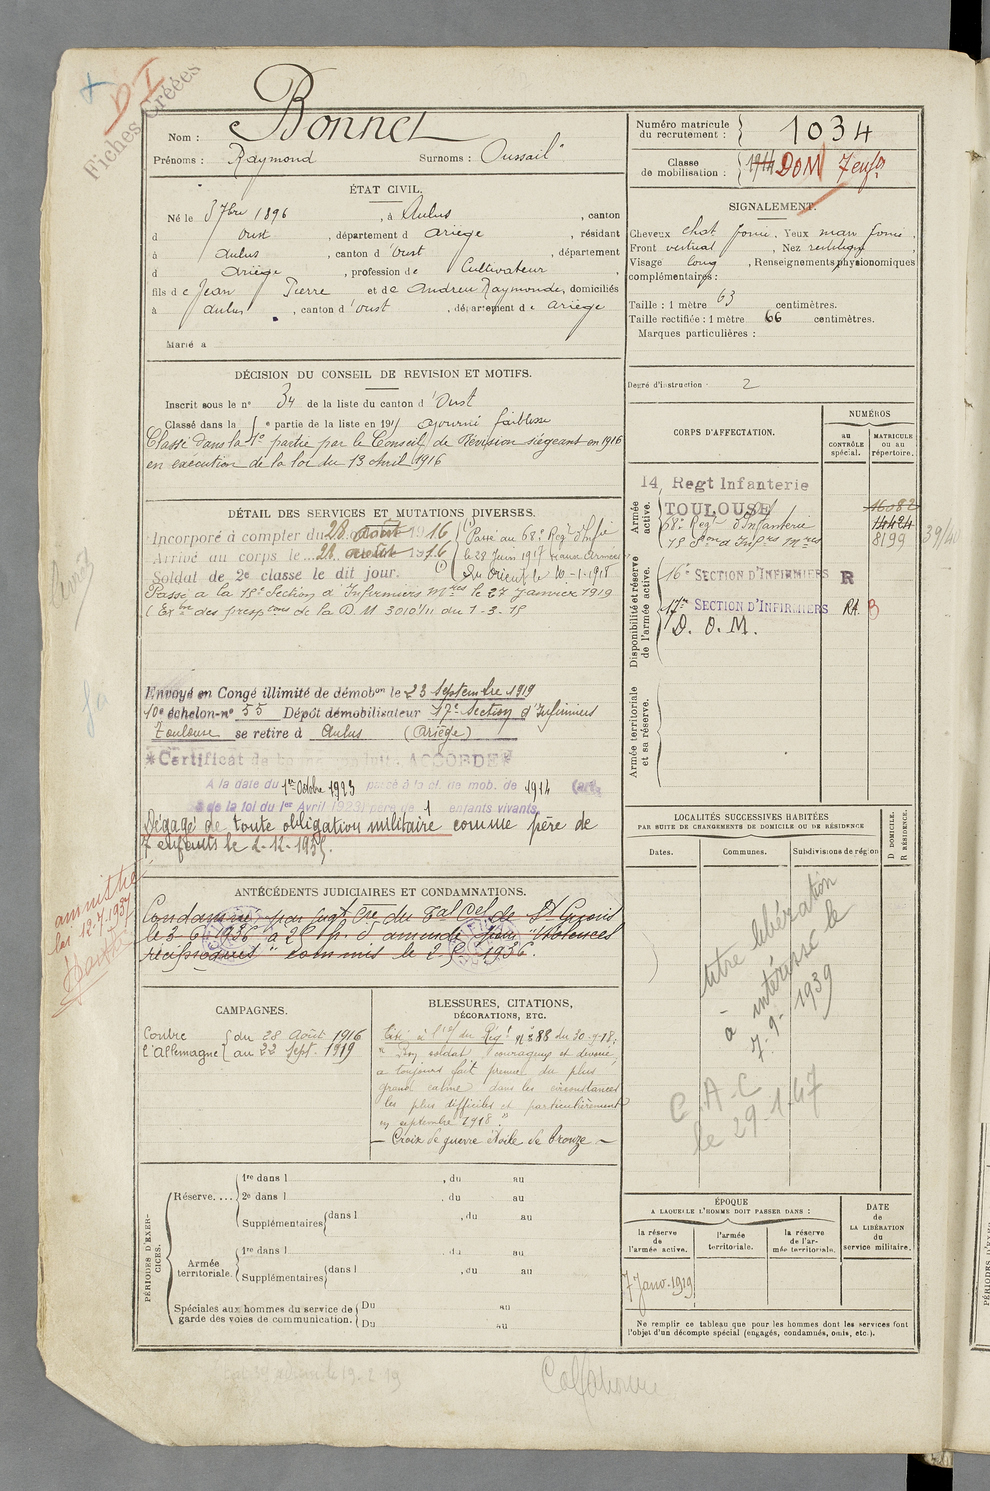 D I
Fiches Créées
Nom : Bonnet
Prénoms : Raymond Surnoms : Oussail
Numéro matricule du recrutement : 1034
Classe de mobilisation : 1914 DOM 7 enfts
ÉTAT CIVIL.
Né le 3 7bre 1896, à Aulus, canton
d Oust, département d Ariège, résidant
à Aulus, canton d'Oust, département
d Ariège, profession de Cultivateur
fils de Jean Pierre et de Andreu Raymonde, domiciliés
à Aulus, canton d'Oust, département de Ariège
Marié à
SIGNALEMENT.
Cheveux chat foncé, Yeux marr foncé,
Front vertical, Nez rectiligne,
Visage long, Renseignements physionomiques
complémentaires :
Taille : 1 mètre 63 centimètres.
Taille rectifiée : 1 mètre 66 centimètres.
Marques particulières :
Degré d'instruction : 2
DÉCISION DU CONSEIL DE REVISION ET MOTIFS.
Inscrit sous le n° 34 de la liste du canton d'Oust
Classé dans la e partie de la liste en 191 ajourné faiblesse
Classé dans la 1e partie par le Conseil de Révision siégeant en 1916
en exécution de la loi du 13 Avril 1916
CORPS D'AFFECTATION.
NUMÉROS
au CONTRÔLE spécial.
MATRICULE ou au répertoire.
Armée active.
14 Regt Infanterie
TOULOUSE 16082
68e Regt d'Infanterie 14424
15 Son d'Infrs Mres 8199
39/40
Disponibilité et réserve de l'armée active.
16e SECTION D'INFIRMIERS R
17e SECTION D'INFIRMIERS RA. B
D. O. M.
Armée territoriale et sa réserve.
DÉTAIL DES SERVICES ET MUTATIONS DIVERSES.
Incorporé à compter du 28 août 1916
Arrivé au corps le 28 août 1916
Soldat de 2e classe le dit jour. (1)
(1) Passé au 68e Reg. d'Infie
le 28 Juin 1917
du Orient le 10-1-1918
Passé à la 15e Section d'Infirmiers Mres le 27 Janvier 1919
(Exon des prespons de la D.M 3010/11 du 1-3-15
Envoyé en Congé illimité de démobon le 23 Septembre 1919
10e échelon-n° 55 Dépôt démobilisateur 17e Section d'Infirmiers
Toulouse se retire à Aulus (Ariège)
Certificat de bonne conduite ACCORDÉ
A la date du 1er Octobre 1923 passé à la cl. de mob. de 1914 (art.
de la loi du 1er Avril 1923) père de 1 enfants vivants.
Dégagé de toute obligation militaire comme père de
7 enfants le 2-12-1935.
LOCALITÉS SUCCESSIVES HABITÉES
PAR SUITE DE CHANGEMENTS DE DOMICILE OU DE RÉSIDENCE
Dates.
Communes.
Subdivisions de région
D DOMICILE.
R RÉSIDENCE.
titre libération
à intéressé le
7-9-1939
C.A.C
le 29.1.47
ANTÉCÉDENTS JUDICIAIRES ET CONDAMNATIONS.
amnistié
loi 12.7.1937
Condamné par Jugt Cre du Tal Cel de St Girons
le 3-6-1936 à 25 f. d'amende pour "Violences
réciproques" commis le 2-5-1936.
CAMPAGNES.
Contre l'Allemagne
du 28 Août 1916
au 22 Sept. 1919
BLESSURES, CITATIONS,
DÉCORATIONS, ETC.
Cité à l'o/ du Régt n° 288 du 30-9-18:
"Bon soldat courageux et dévoué,
a toujours fait preuve du plus
grand calme dans les circonstances
les plus difficiles et particulièrement
en septembre 1918."
— Croix de guerre étoile de bronze —
PÉRIODES D'EXERCICES.
Réserve....
1re dans l , du au
2e dans l , du au
Supplémentaires dans l , du au
Armée territoriale.
1re dans l , du au
Supplémentaires dans l , du au
Spéciales aux hommes du service de garde des voies de communication.
Du au
Du au
ÉPOQUE
A LAQUELLE L'HOMME DOIT PASSER DANS :
la réserve de l'armée active.
l'armée territoriale.
la réserve de l'armée territoriale.
DATE de LA LIBÉRATION du service militaire.
7 Janv. 1919
Ne remplir ce tableau que pour les hommes dont les services font
l'objet d'un décompte spécial (engagés, condamnés, omis, etc.).